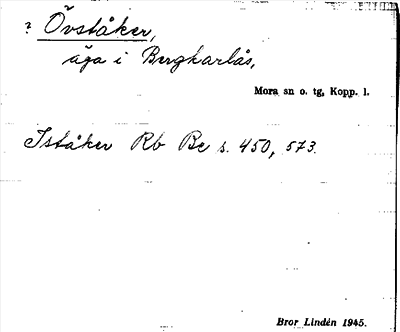 ? Övståker,
äga i Bergkarlås,
Mora sn o. tg, Kopp. l.
Iståker Rb Be s. 450, 573.
Bror Lindén 1945.